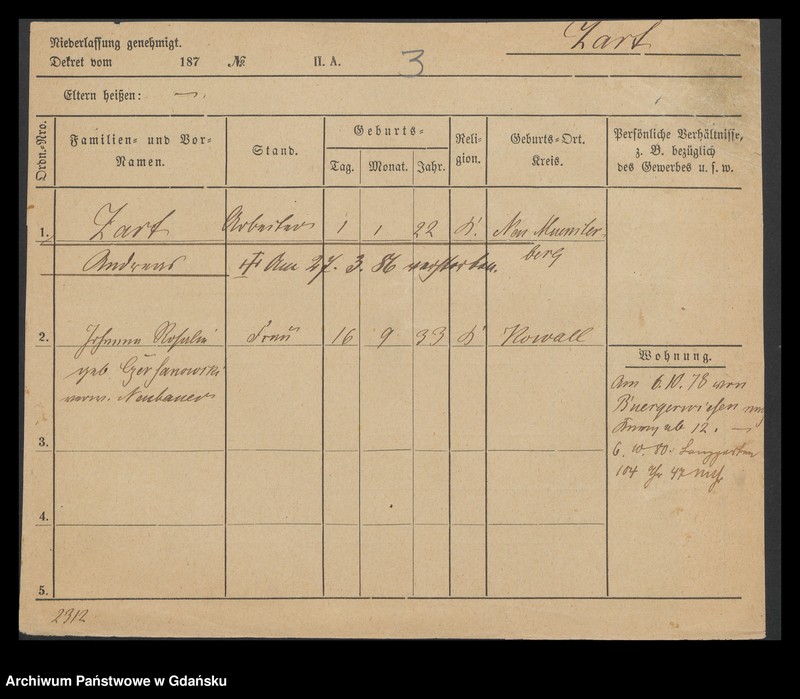 Zart
Niederlassung genehmigt.
Dekret vom 187 № II. A. 3
Eltern heißen: —.
Ordn.-Nro.
Familien- und Vor-
Namen.
Stand.
Geburts-
Tag. Monat. Jahr.
Reli-
gion.
Geburts-Ort.
Kreis.
Persönliche Verhältnisse,
z. B. bezüglich
des Gewerbes u. s. w.
1. Zart Arbeiter 1 1 22 Neu Muenster
berg
Andreas Am 27. 3. 86 verstorben.
2. Johanna Rosalie Frau 16 9 33 Kowall
geb
verw. Neubauer
Wohnung.
Am 6.10.78 von
Buergerwiesen
12. —
6. 10. 80. Langgarten
104
3.
4.
5.
2312
Archiwum Państwowe w Gdańsku